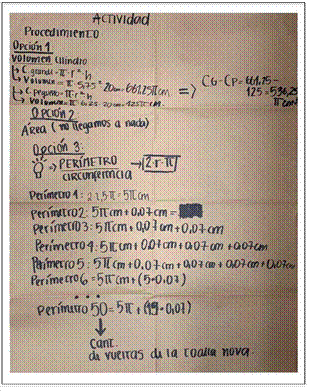 Actividad
Procedimiento
Opción 1
Volumen Cilindro
↳ C grande = π·r²·h
↳ Volumen = π·5,75²·20cm = 661,25πcm³
↳ C pequeño = π·r²·h
↳ Volumen = π·6,25·20cm = 125πcm³
⇒ CG - CP = 661,25 -
125 = 536,25
πcm³
Opción 2
Área (no llegamos a nada)
Opción 3:
→ PERÍMETRO CIRCUNFERENCIA → 2·r·π
Perímetro 1: 2·2,5π = 5πcm
Perímetro 2: 5πcm + 0,07cm =
Perímetro 3: 5πcm + 0,07cm + 0,07cm
Perímetro 4: 5πcm + 0,07cm + 0,07cm + 0,07cm
Perímetro 5: 5πcm + 0,07cm + 0,07cm + 0,07cm + 0,07cm
Perímetro 6 = 5πcm + (5·0,07)
...
Perímetro 50 = 5π + (49·0,07)
↓
Cant.
de vueltas de la toalla nova.